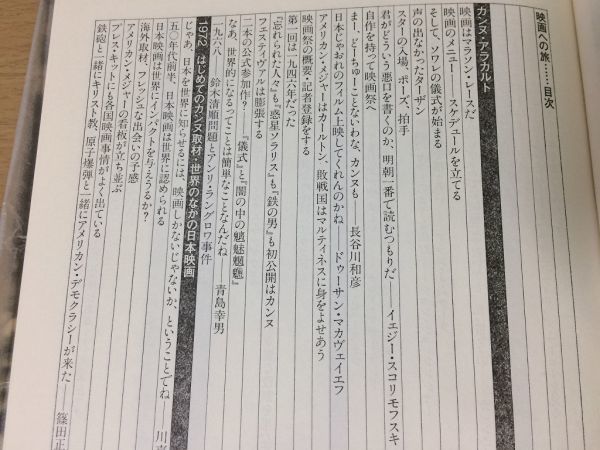 映画への旅……目次
カンヌ・アラカルト
映画はマラソン・レースだ
映画のメニュー――スケデュールを立てる
そして、ソワレの儀式が始まる
声の出なかったターザン
スターの入場 ポーズ、拍手
君がどういう悪口を書くのか、明朝一番で読むつもりだ――イェジー・スコリモフスキ
自作を持って映画祭へ
まー、どーちゅーことないわな、カンヌも――長谷川和彦
日本じゃおれのフィルム上映してくれんのかね――ドゥーサン・マカヴェイエフ
アメリカン・メジャーはカールトン、敗戦国はマルティネスに身をよせあう
映画祭の概要・記者登録をする
第一回は一九四六年だった
『忘れられた人々』も『惑星ソラリス』も『鉄の男』も初公開はカンヌ
フェスティヴァルは膨張する
二本の公式参加作?『儀式』と『闇の中の魑魅魍魎』
なあ、世界的になるってことは簡単なことなんだね――青島幸男
一九六八 鈴木清順問題とアンリ・ラングロワ事件
1972 はじめてのカンヌ取材・世界のなかの日本映画
じゃあ、日本を世界に知らせるには、映画しかないじゃないか、ということでね――川喜
五〇年代前半、日本映画は世界に認められる
日本映画は世界にインパクトを与えうるか?
海外取材、フレッシュな出会いの予感
アメリカン・メジャーの看板が立ち並ぶ
プレス・キットにも各国映画事情がよく出ている
鉄砲と一緒にキリスト教、原子爆弾と一緒にアメリカン・デモクラシーが来た――篠田正